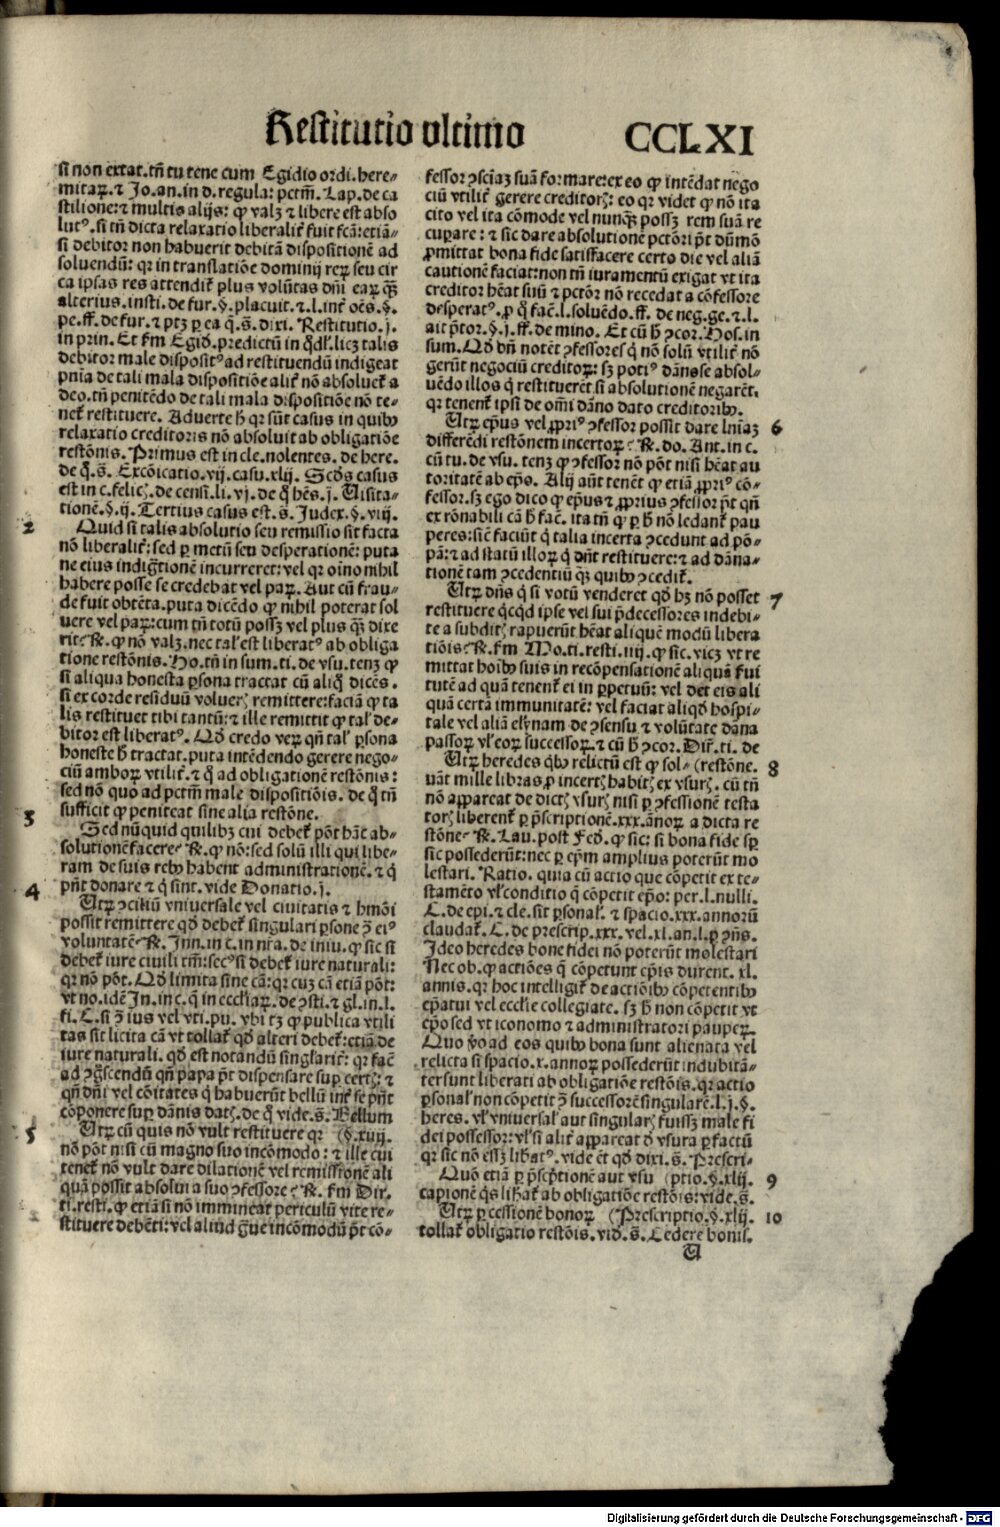 Restitutio vltimo CCLXI
si non extat. tñ tu tene cum Egidio ordi. here-
mitaꝝ. ⁊ Jo. an. in d. regula: pctm̄. Lap. de ca
stilione: ⁊ multis alijs: ꝙ valꝫ ⁊ libere est abso
lutꝰ. si tñ dicta relaxatio liberalit̄ fuit fc̄a: etiā-
si debitor non habuerit debitā dispositionē ad
soluendū: qꝛ in translatiōe dominij reꝝ seu cir
ca ipsas res attendit̄ plus volūtas dn̄i eaꝝ qꝫ̄
alterius. insti. de fur. §. placuit. ⁊. l. int̄ oēs. §.
pe. ff. de fur. ⁊ ptꝫ ꝑ ea q̄. s̄. dixi. Restitutio. j.
in prin. Et fm̄ Egid̄. predictū in q̄dl̄. licꝫ talis
debitor male dispositꝰ ad restituendū indigeat
pn̄ia de tali mala dispositiōe alit̄ nō absoluet̄ a
deo. tñ penitēdo de tali mala dispositiōe nō te-
net̄ restituere. Aduerte h̄ qꝛ sūt casus in quibꝰ
relaxatio creditoris nō absoluit ab obligatiōe
restōnis. Primus est in cle. nolentes. de here.
de q̄. s̄. Excōicatio. vij. casu. xlij. Scd̄s casus
est in c. felicꝭ. de censi. li. vj. de q̄ hēs. j. Visita-
tionē. §. ij. Tertius casus est. s̄. Judex. §. viij.
2 Quid si talis absolutio seu remissio sit facta
nō liberalit̄: sed ꝑ metū seu desperationē: puta
ne eius indiḡtionē incurreret: vel qꝛ oīno nihil
habere posse se credebat vel paꝝ. Aut cū frau-
de fuit obtēta. puta dicēdo ꝙ nihil poterat sol
uere vel paꝝ: cum tñ totū possꝫ vel plus qꝫ̄ dixe
rit: ℞. ꝙ nō valꝫ. nec tal' est liberatꝰ ab obliga
tione restōnis. Ho. tñ in sum. ti. de vsu. tenꝫ ꝙ
si aliqua honesta ꝑsona tractat cū aliq̄ dicēs.
si ex corde residuū volueꝭ remittere: faciā ꝙ ta
lis restituet tibi tantū: ⁊ ille remittit ꝙ tal' de-
bitor est liberatꝰ. Qd̄ credo veꝝ qn̄ tal' ꝑsona
honeste h̄ tractat. puta intēdendo gerere nego-
ciū amboꝝ vtilit̄. ⁊ q̄ ad obligationē restōnis:
sed nō quo ad pctm̄ male dispositiōis. de q̄ tñ
sufficit ꝙ peniteat sine alia restōne.
3 Sed nūquid quilibꝫ cui debet̄ pōt hāc ab-
solutionē facere: ℞. ꝙ nō: sed solū illi qui libe-
ram de suis rebꝰ habent administrationē. ⁊ q̄
pn̄t donare ⁊ q̄ sint. vide Donatio. j.
4 Vtꝝ ꝯciliū vniuersale vel ciuitatis ⁊ hmōi
possit remittere qd̄ debet̄ singulari ꝑsone ꝯ̄ eiꝰ
voluntatē: ℞. Inn. in c. in nr̄a. de iniu. ꝙ sic si
debet̄ iure ciuili tm̄: secꝰ si debet̄ iure naturali:
qꝛ nō pōt. Qd̄ limita sine cā: qꝛ cuꝫ cā etiā pōt:
vt no. idē In. in c. q̄ in eccl'iaꝝ. de ꝯsti. ⁊ gl. in. l.
fi. C. si ꝯ̄ ius vel vti. pu. vbi tꝫ ꝙ publica vtili
tas sit licita cā vt tollat̄ qd̄ alteri debet̄: etiā de
iure naturali. qd̄ est notandū singlarit̄: qꝛ facē
ad ꝯḡscendū qn̄ papa pōt dispensare suꝑ certꝭ: ⁊
qn̄ dn̄i vel cōitates q̄ habuerūt bellū int̄ se pn̄t
cōponere suꝑ dānis datꝭ. de q̄ vide. s̄. Bellum
5 Vtꝝ cū quis nō vult restituere qꝛ (§. xviij.
nō pōt nisi cū magno suo incōmodo: ⁊ ille cui
tenet̄ nō vult dare dilationē vel remissionē ali
quā possit absolui a suo ꝯfessore: ℞. fm̄ Dir.
ti. resti. ꝙ etiā si nō immineat periculū vite re-
stituere debēti: vel aliud ḡue incōmodū pōt cō-
fessor ꝯsciaꝫ suā formare: ex eo ꝙ intēdat nego
ciū vtilit̄ gerere creditorꝭ: eo qꝛ videt ꝙ nō ita
cito vel ita cōmode vel nunqꝫ possꝫ rem suā re
cuperare: ⁊ sic dare absolutionē pctōri pōt dūmō
ꝓmittat bona fide satisfacere certo die vel aliā
cautionē faciat: non tñ iuramentū exigat vt ita
creditor hēat suū ⁊ pctōr nō recedat a cōfessore
desperatꝰ. ꝑ q̄ facē. l. soluēdo. ff. de neg. ge. ⁊. l.
ait p̄tor. §. j. ff. de mino. Et cū h̄ ꝯcor. Hos. in
sum. Qd̄ bn̄ notēt ꝯfessores q̄ nō solū vtilit̄ nō
gerūt negociū creditoꝝ: sꝫ potiꝰ dānose absol-
uēdo illos q̄ restituerēt si absolutionē negarēt.
qꝛ tenent̄ ipsi de om̄i dāno dato creditoribꝰ.
Vtꝝ ep̄us vel ꝓpriꝰ ꝯfessor possit dare ln̄iaꝫ 6
differēdi restōnem incertoꝝ: ℞. do. Ant. in c.
cū tu. de vsu. tenꝫ ꝙ ꝯfessor nō pōt nisi hēat au
toritatē ab ep̄o. Alij aūt tenēt ꝙ etiā ꝓpriꝰ cō-
fessor. sꝫ ego dico ꝙ ep̄us ⁊ ꝓprius ꝯfessor pōt qn̄
ex rōnabili cā h̄ facē. ita tñ ꝙ ꝑ h̄ nō ledant̄ pau
peres: sic̄ faciūt q̄ talia incerta ꝯcedunt ad pō-
pā: ⁊ ad statū illoꝝ q̄ dn̄t restituere: ⁊ ad dāna-
tionē tam ꝯcedentiū qꝫ̄ quibꝰ ꝯcedit̄.
Vtꝝ dn̄s q̄ si votū venderet qd̄ hꝫ nō posset 7
restituere qcqd̄ ipse vel sui p̄decessores indebi-
te a subditꝭ rapuerūt hēat aliquē modū libera
tiōis: ℞. fm̄ Mo. ti. resti. iiij. ꝙ sic. vicꝫ vt re
mittat hoībꝰ suis in recōpensationē aliquā ſui
tutē ad quā tenent̄ ei in ꝑpetuū: vel det eis ali
quā certā immunitatē: vel faciat aliqd̄ hospi-
tale vel aliā elȳnam de ꝯsensu ⁊ volūtate dāna
passoꝝ vl' eoꝝ successoꝝ. ⁊ cū h̄ ꝯcor. Dir. ti. de
Vtꝝ heredes qbꝰ relictū est ꝙ sol- (restōne. 8
uāt mille libras ꝓ incertꝭ habitꝭ ex vsurꝭ. cū tñ
nō appareat de dictꝭ vsurꝭ nisi ꝑ ꝯfessionē testa
torꝭ liberent̄ ꝑ p̄scriptionē. xxx. annoꝝ a dicta re
stōne: ℞. Lau. post Fed. ꝙ sic: si bona fide sp̄
sic possederūt: nec ꝑ ep̄m amplius poterūt mo
lestari. Ratio. quia cū actio que cōpetit ex te-
stamēto vl' conditio q̄ cōpetit ep̄o: per. l. nulli.
C. de epi. ⁊ cle. sit ꝑsonal'. ⁊ spacio. xxx. annorū
claudat̄. C. de prescrip. xxx. vel. xl. an. l. ꝑ ꝯn̄s.
Ideo heredes bone fidei nō poterūt molestari
Nec ob. ꝙ actiōes q̄ cōpetunt ep̄is durent. xl.
annis. qꝛ hoc intelligit̄ de actiōibꝰ cōpetentibꝰ
ep̄atui vel eccl'ie collegiate. sꝫ h̄ non cōpetit vt
ep̄o sed vt iconomo ⁊ administratori pauperꝝ.
Quo v̄o ad eos quibꝰ bona sunt alienata vel
relicta si spacio. x. annoꝝ possederūt indubitā-
ter sunt liberati ab obligatiōe restōis. qꝛ actio
ꝑsonal' non cōpetit ꝯ̄ successorē singularē. l. j. §.
heres. vl' vniuersal' aut singularꝭ fuissꝫ male fi
dei possessor: vl' si alit̄ appareat d̄ vsura ꝑ factū
qꝛ sic nō essꝫ lib̄atꝰ. vide et̄ qd̄ dixi. s̄. Prescri-
Quō etiā ꝑ p̄scp̄tionē aut vsu (ptio. §. xlij. 9
capionē qs lib̄at̄ ab obligatiōe restōis: vide. s̄.
Vtꝝ ꝑ cessionē bonoꝝ (Prescriptio. §. xlij. 10
tollat̄ obligatio restōis. vid̄. s̄. Cedere bonis.
V
Digitalisierung gefördert durch die Deutsche Forschungsgemeinschaft - DFG